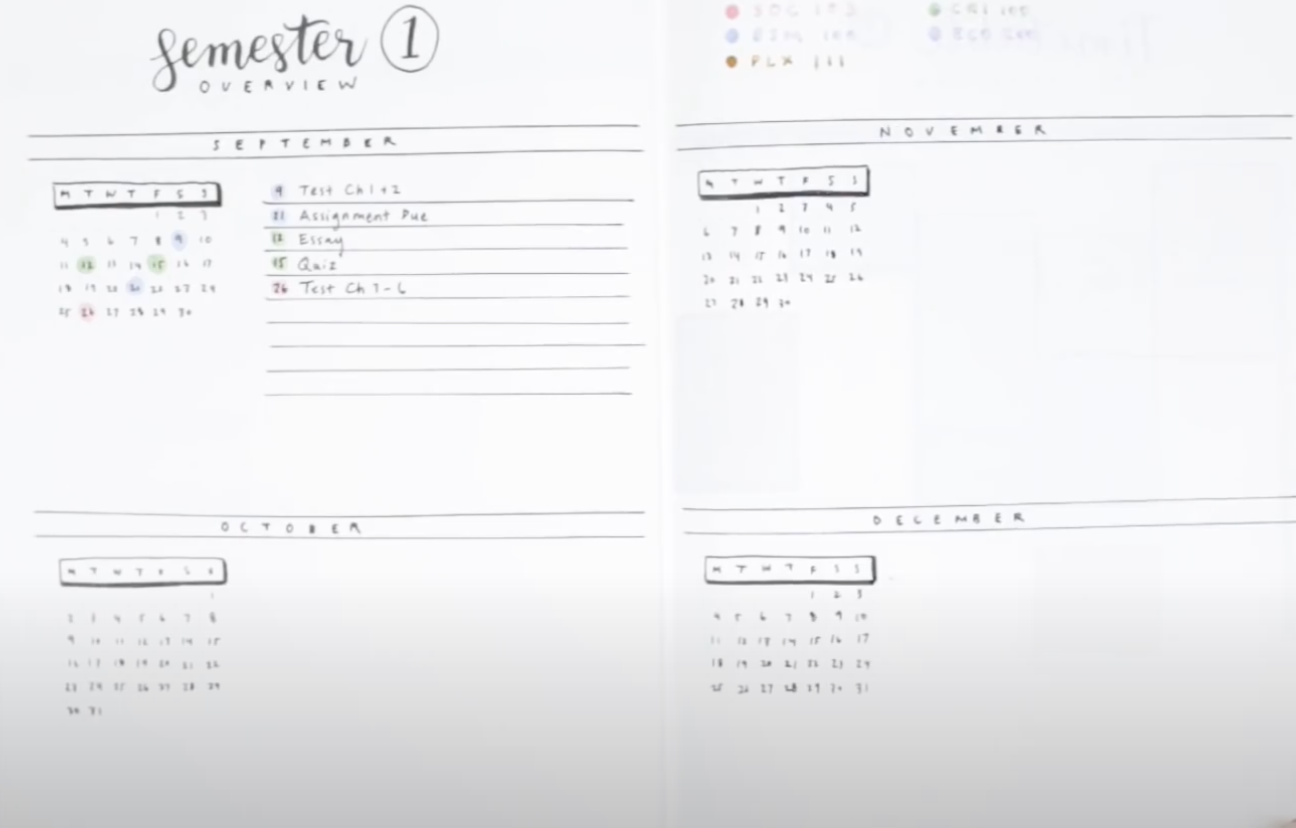 Semester 1
OVERVIEW
SEPTEMBER
M T W T F S S
1 2 3
4 5 6 7 8 9 10
11 12 13 14 15 16 17
18 19 20 22 23 24
25 26 27 28 29 30
9 Test Ch 1+2
Assignment Due
12 Essay
15 Quiz
26 Test Ch 1-6
OCTOBER
M T W T F S S
1
2 3 4 5 6 7 8
9 10 11 12 13 14 15
16 17 18 19 20 21 22
23 24 25 26 27 28 29
30 31
PLX 111
NOVEMBER
M T W T F S S
1 2 3 4 5
6 7 8 9 10 11 12
13 14 15 16 17 18 19
20 21 22 23 24 25 26
27 28 29 30
DECEMBER
M T W T F S S
1 2 3
4 5 6 7 8 9 10
11 12 13 14 15 16 17
18 19 20 21 22 23 24
25 26 27 28 29 30 31